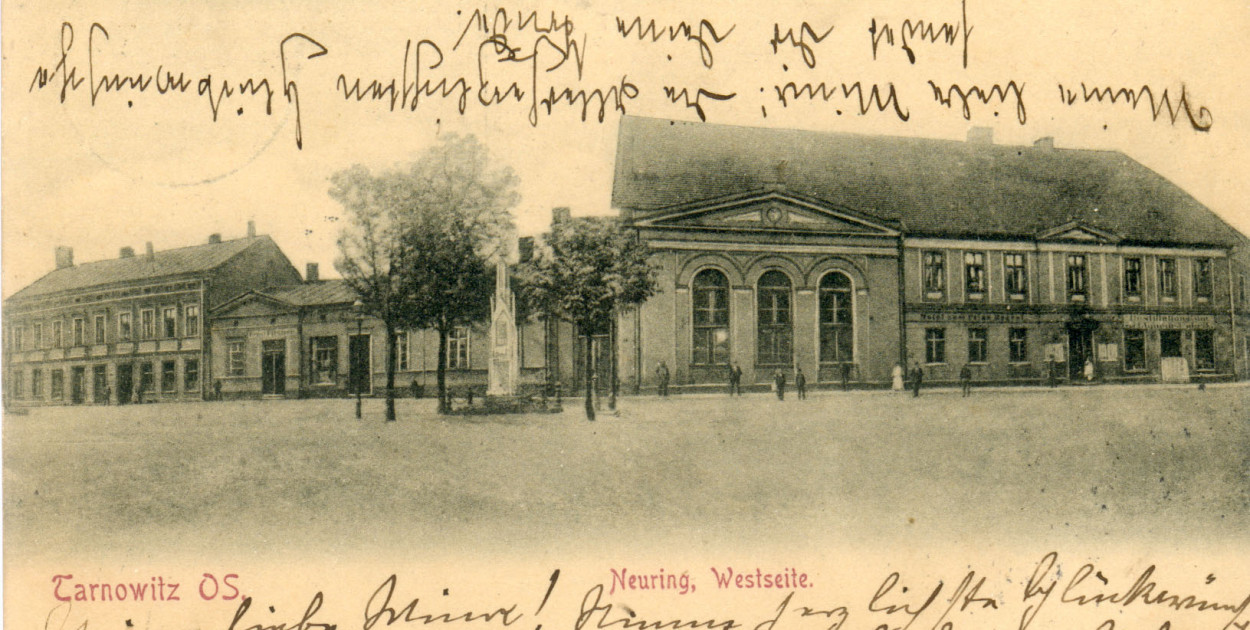 Meine liebe Mimi! die Allerherzlichsten Glückwünsche
sendet dir Deine
Hotel zum
Tarnowitz OS.
Neuring, Westseite.
liebe ! Nimm herzlichste Glückwünsch